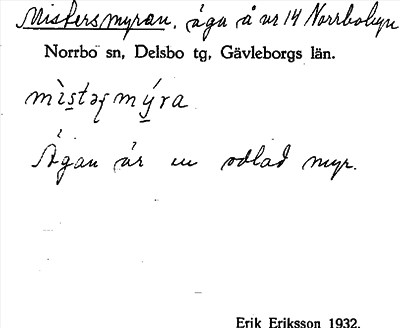 Mistersmyran, äga å nr 14 Norrbobyn
Norrbo sn, Delsbo tg, Gävleborgs län.
mìstəʂmýra
Ägan är en odlad myr.
Erik Eriksson 1932.